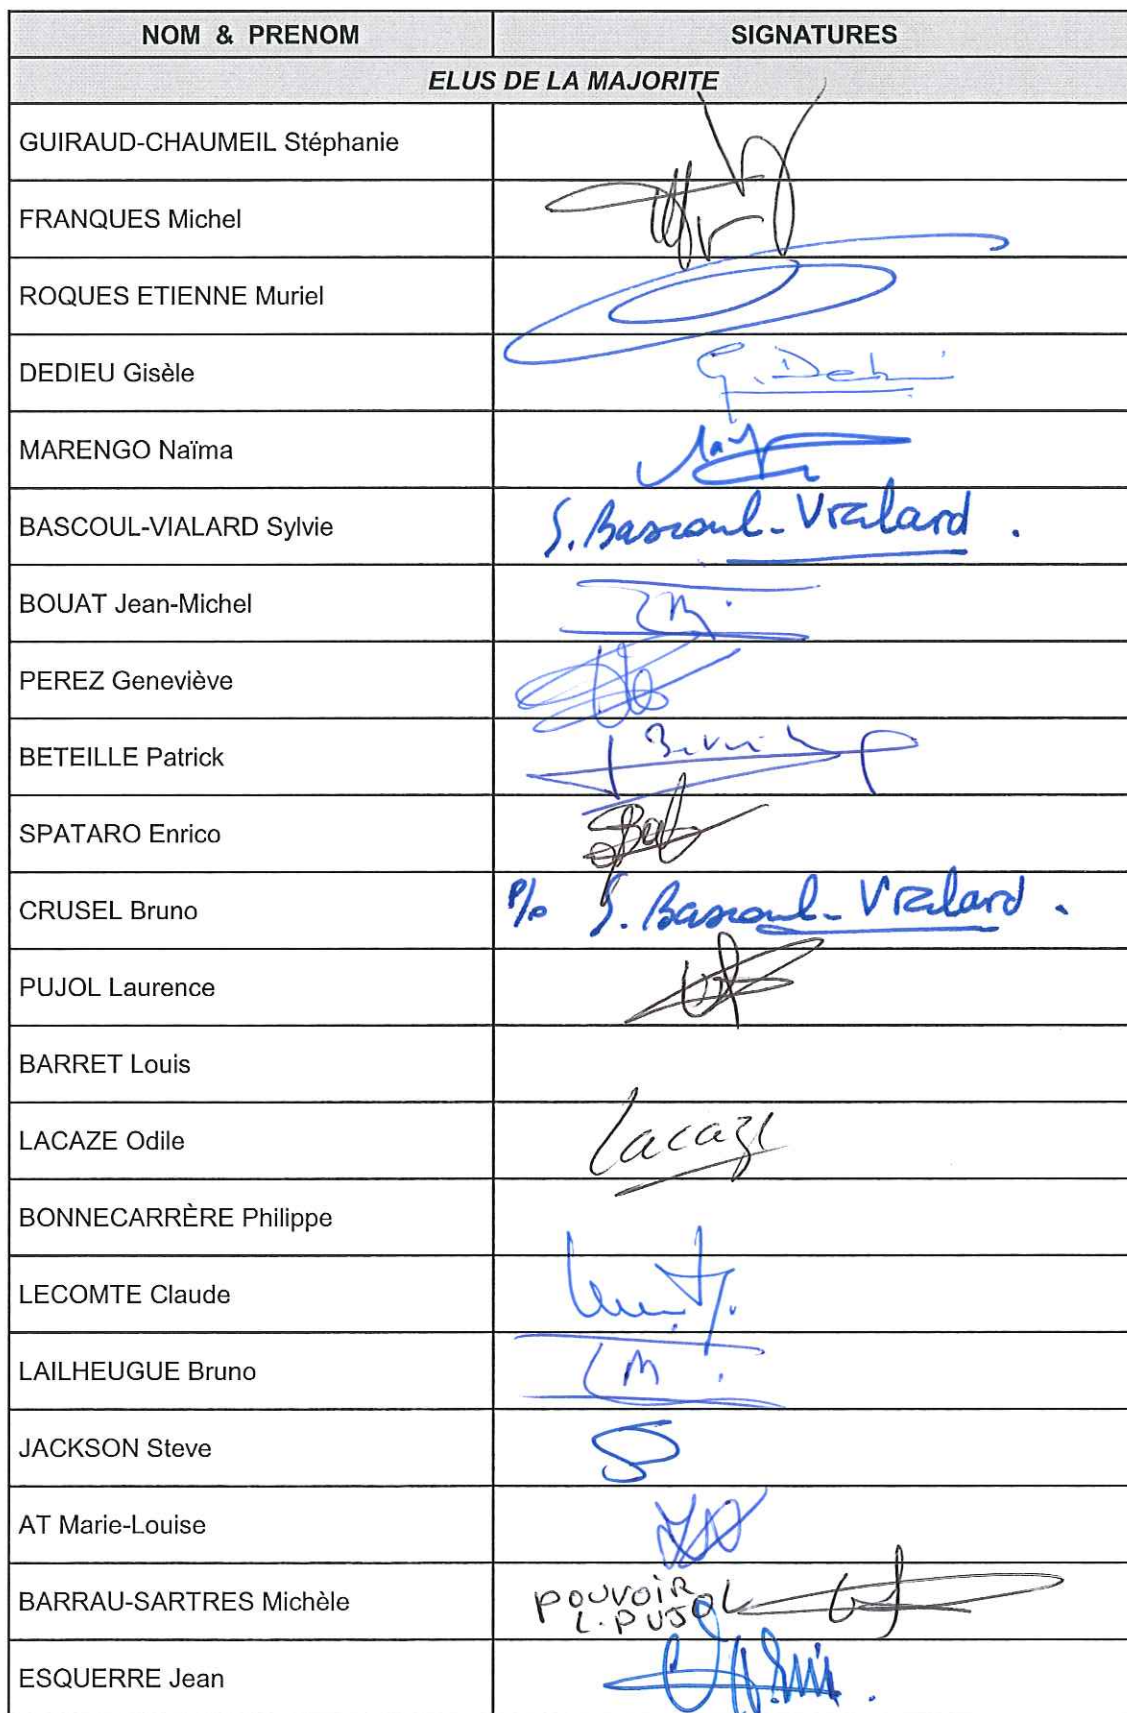 NOM & PRENOM SIGNATURES
ELUS DE LA MAJORITE
GUIRAUD-CHAUMEIL Stéphanie
FRANQUES Michel
ROQUES ETIENNE Muriel
DEDIEU Gisèle
MARENGO Naïma
BASCOUL-VIALARD Sylvie S. Bascoul-Vialard.
BOUAT Jean-Michel
PEREZ Geneviève
BETEILLE Patrick
SPATARO Enrico
CRUSEL Bruno P/o S. Bascoul-Vialard.
PUJOL Laurence
BARRET Louis
LACAZE Odile Lacaze
BONNECARRÈRE Philippe
LECOMTE Claude
LAILHEUGUE Bruno
JACKSON Steve
AT Marie-Louise
BARRAU-SARTRES Michèle POUVOIR
L. PUJOL
ESQUERRE Jean